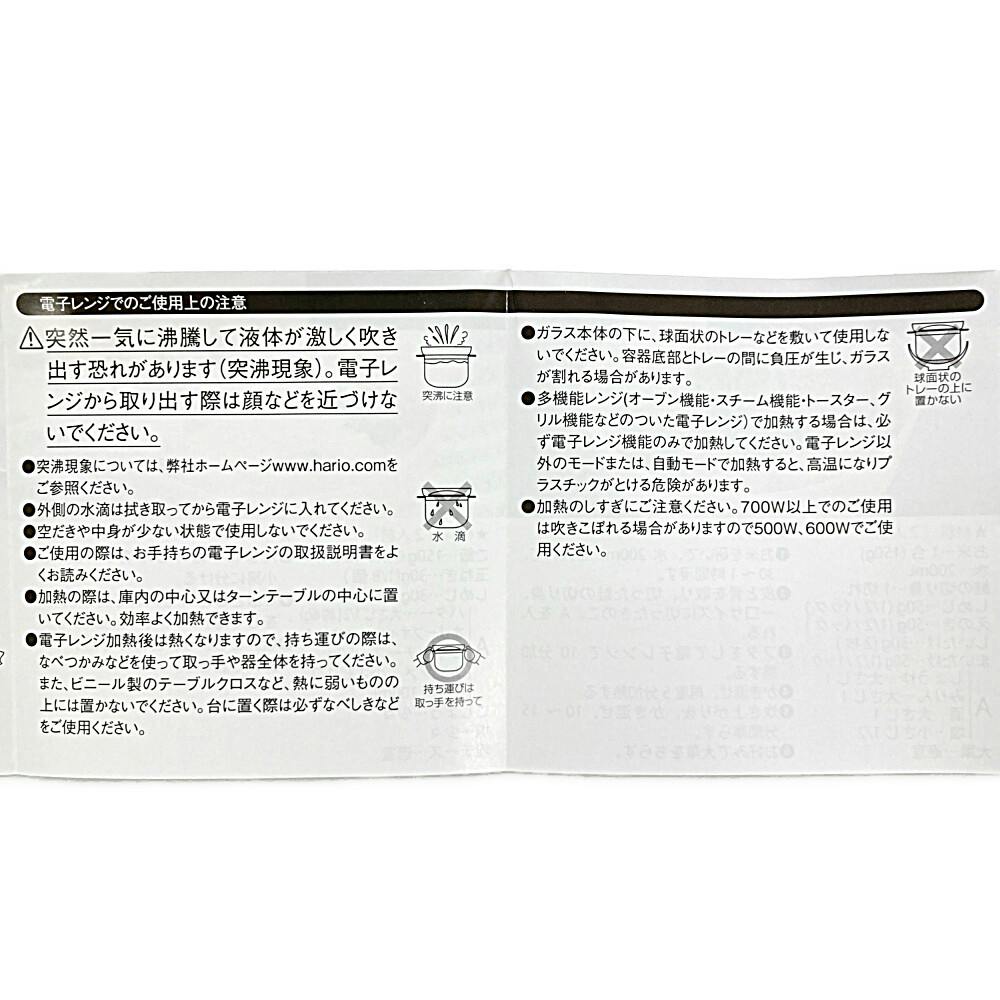 電子レンジでのご使用上の注意
⚠突然一気に沸騰して液体が激しく吹き
出す恐れがあります(突沸現象)。電子レ
ンジから取り出す際は顔などを近づけな
いでください。
突沸に注意
●突沸現象については、弊社ホームページwww.hario.comを
ご参照ください。
●外側の水滴は拭き取ってから電子レンジに入れてください。
●空だきや中身が少ない状態で使用しないでください。
水 滴
●ご使用の際は、お手持ちの電子レンジの取扱説明書をよ
くお読みください。
●加熱の際は、庫内の中心又はターンテーブルの中心に置
いてください。効率よく加熱できます。
●電子レンジ加熱後は熱くなりますので、持ち運びの際は、
なべつかみなどを使って取っ手や器全体を持ってください。
また、ビニール製のテーブルクロスなど、熱に弱いものの
上には置かないでください。台に置く際は必ずなべしきなど
をご使用ください。
持ち運びは
取っ手を持って
●ガラス本体の下に、球面状のトレーなどを敷いて使用しな
いでください。容器底部とトレーの間に負圧が生じ、ガラス
が割れる場合があります。
球面状の
トレーの上に
置かない
●多機能レンジ(オーブン機能・スチーム機能・トースター、グ
リル機能などのついた電子レンジ)で加熱する場合は、必
ず電子レンジ機能のみで加熱してください。電子レンジ以
外のモードまたは、自動モードで加熱すると、高温になりプ
ラスチックがとける危険があります。
●加熱のしすぎにご注意ください。700W以上でのご使用
は吹きこぼれる場合がありますので500W、600Wでご使
用ください。